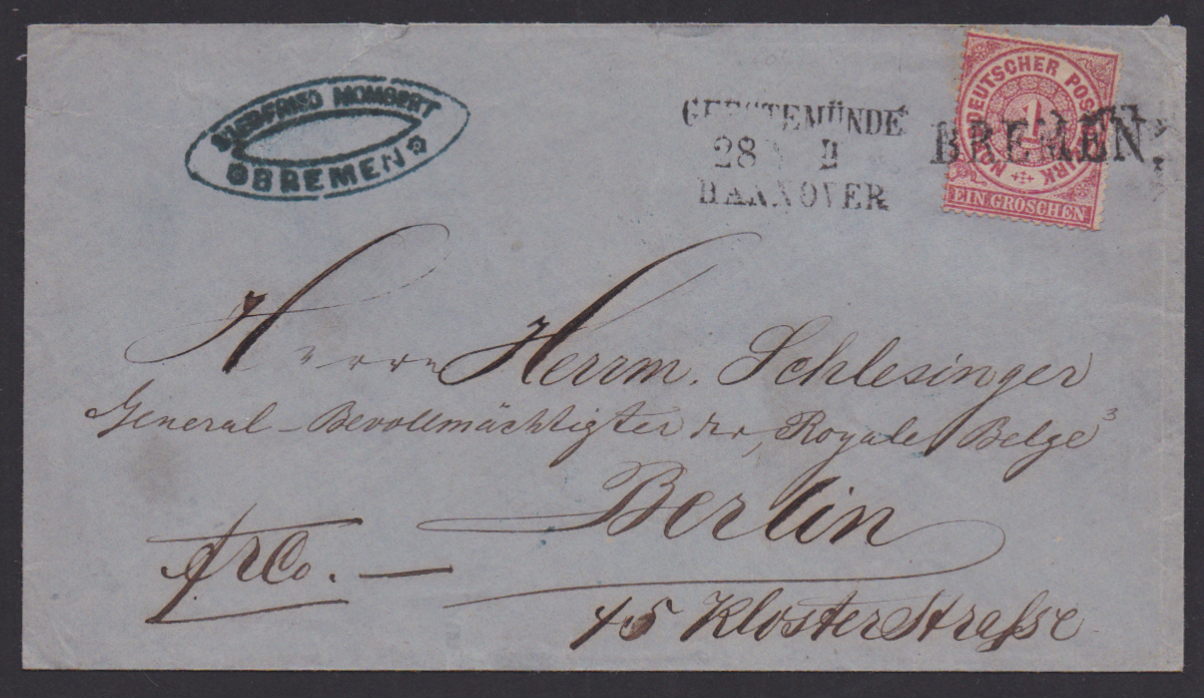 SIEGFRIED MOMBERT
BREMEN
GEESTEMÜNDE
28 II
HANNOVER
NORDDEUTSCHER POSTBEZIRK
1
EIN GROSCHEN
BREMEN.
Herrn Herrm. Schlesinger
General-Bevollmächtigter der „Royale Belge“
Berlin
frco.
45 Kloster Strasse